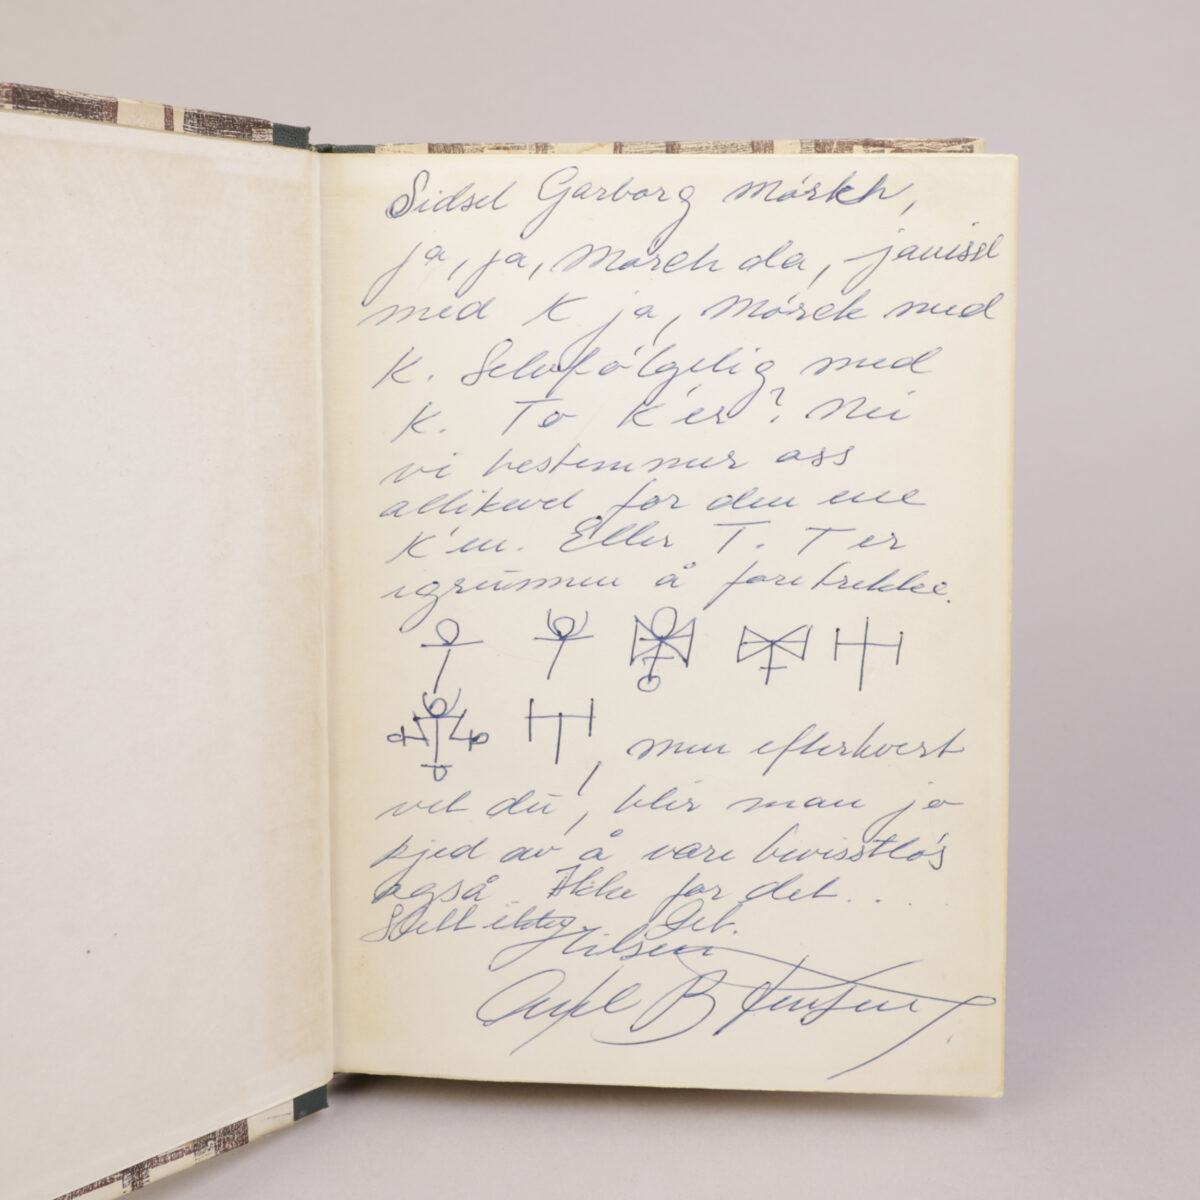 Sidsel Garborg Mórkh,
ja, ja, Mórch da, javisst
med K ja, Mórck med
K. Selvfólgelig med
K. To K'er? Nei
vi bestemmer oss
allikevel for den ene
K'en. Eller T. T er
igrunnen å foretrekke.
, men efterhvert
vet du, blir man jo
kjed av å være bevisstløs
også Ikke for det....
Hilsen
Axel B Jensen